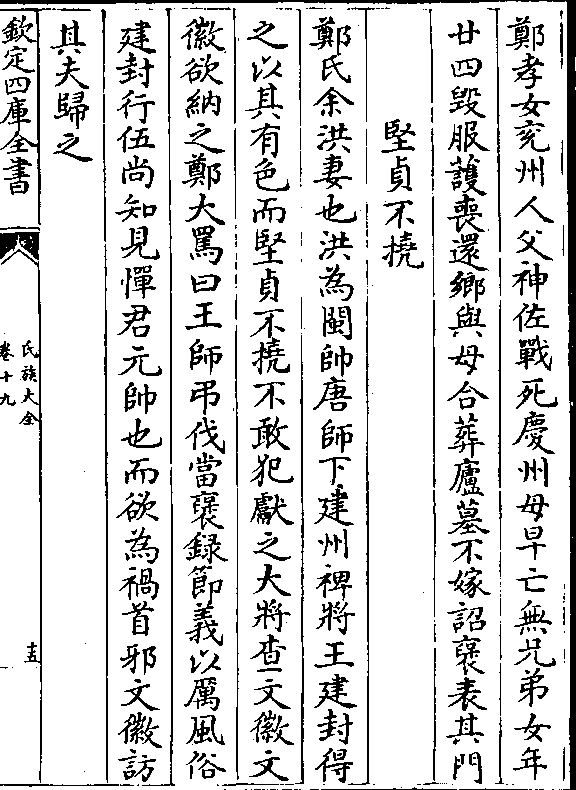 鄭孝女兖州人父神佐戰死慶州母早亡無兄弟女年
廿四毁服護喪還鄉與母合葬廬墓不嫁詔襃表其門
堅貞不撓
鄭氏余洪妻也洪為閩帥唐師下建州裨將王建封得
之以其有色而堅貞不撓不敢犯獻之大將查文徽文
徽欲納之鄭大罵曰王師弔伐當襃録節義以厲風俗
建封行伍尚知見憚君元帥也而欲為禍首邪文徽訪
其夫歸之
欽定四庫全書
氏族大全
卷十九
十五